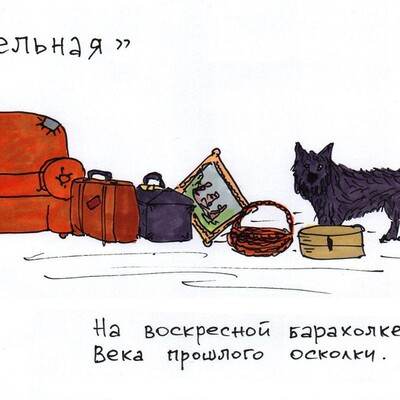 ельная”
На воскресной барахолке
Века прошлого осколки.